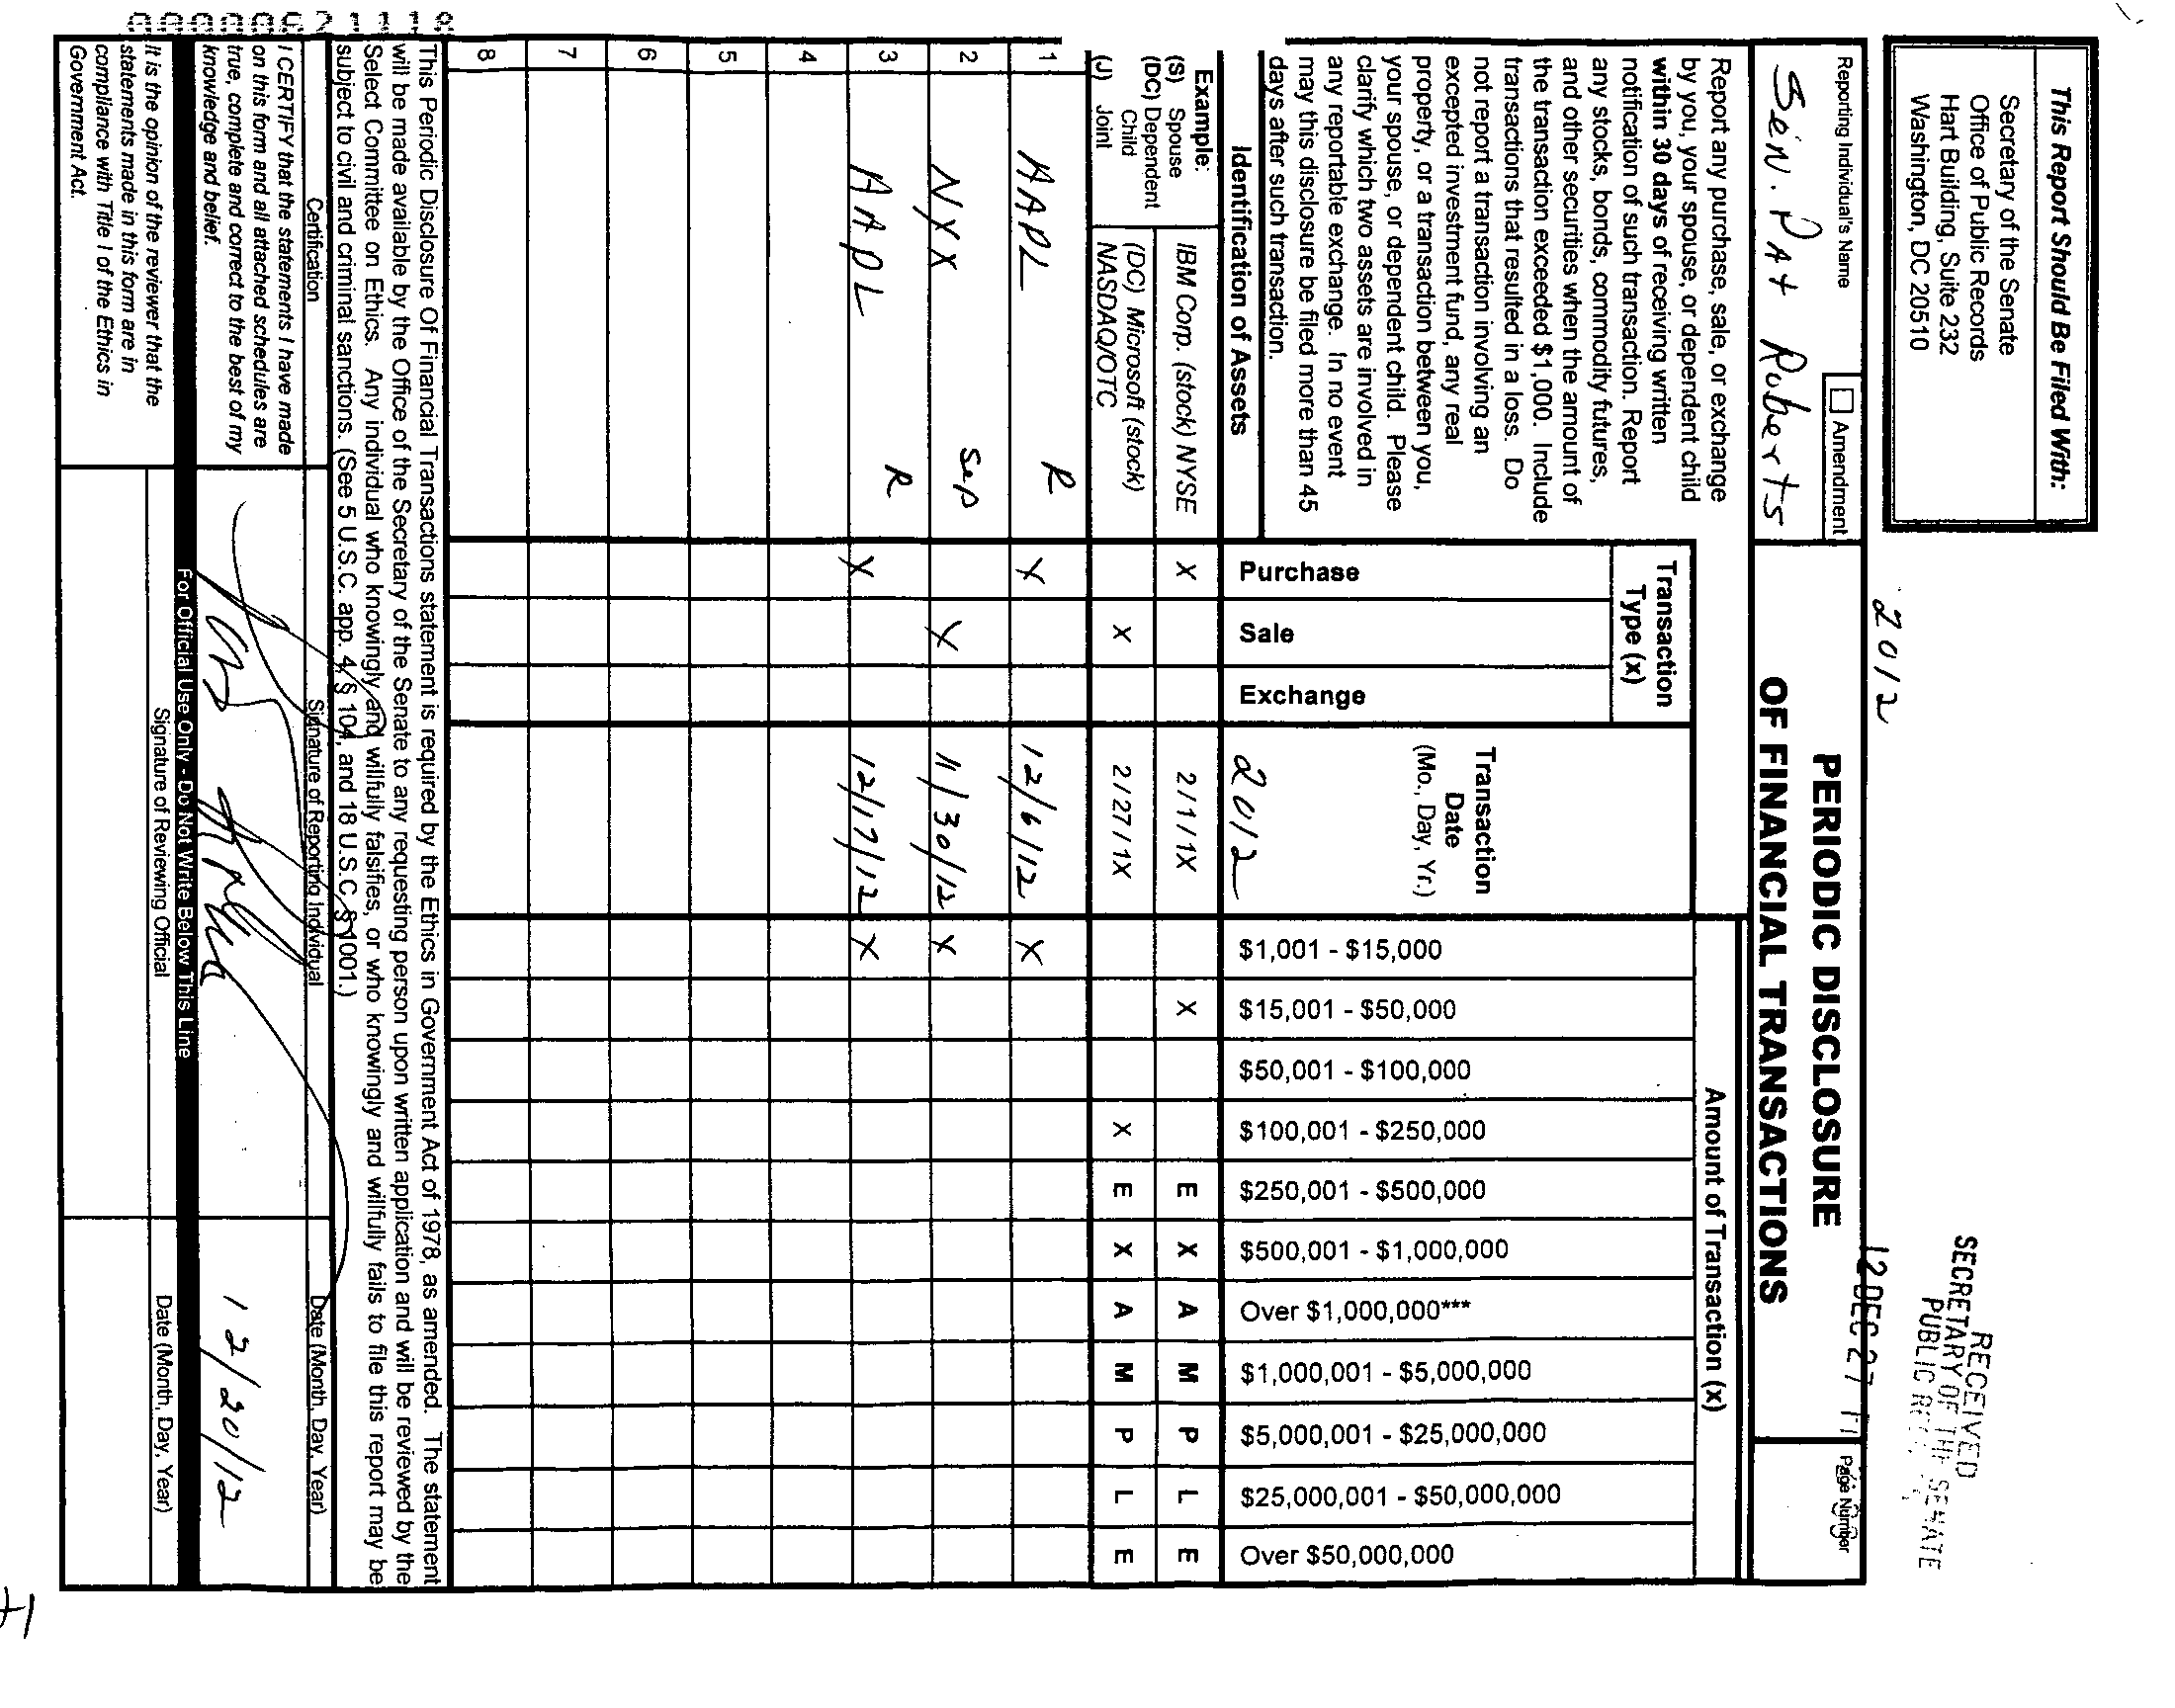 This Report Should Be Filed With:
Secretary of the Senate
Office of Public Records
Hart Building, Suite 232
Washington, DC 20510
2012
RECEIVED
SECRETARY OF THE SENATE
PUBLIC
12 DEC 27
Reporting Individual's Name
Amendment
Sen. Pat Roberts
PERIODIC DISCLOSURE
OF FINANCIAL TRANSACTIONS
Page Number
Report any purchase, sale, or exchange
by you, your spouse, or dependent child
within 30 days of receiving written
notification of such transaction. Report
any stocks, bonds, commodity futures,
and other securities when the amount of
the transaction exceeded $1,000. Include
transactions that resulted in a loss. Do
not report a transaction involving an
excepted investment fund, any real
property, or a transaction between you,
your spouse, or dependent child. Please
clarify which two assets are involved in
any reportable exchange. In no event
may this disclosure be filed more than 45
days after such transaction.
Identification of Assets
Transaction
Type (x)
Purchase
Sale
Exchange
Transaction
Date
(Mo., Day, Yr.)
2012
Amount of Transaction (x)
$1,001 - $15,000
$15,001 - $50,000
$50,001 - $100,000
$100,001 - $250,000
$250,001 - $500,000
$500,001 - $1,000,000
Over $1,000,000***
$1,000,001 - $5,000,000
$5,000,001 - $25,000,000
$25,000,001 - $50,000,000
Over $50,000,000
Example:
(S) Spouse
(DC) Dependent
Child
(J) Joint
IBM Corp. (stock) NYSE X 2/1/1X X E X A M P L E
(DC) Microsoft (stock)
NASDAQ/OTC X 2/27/1X X E X A M P L E
1 AAPL R X 12/6/12 X
2 NYX Sep X 11/30/12 X
3 AAPL R X 12/17/12 X
4
5
6
7
8
This Periodic Disclosure Of Financial Transactions statement is required by the Ethics in Government Act of 1978, as amended. The statement
will be made available by the Office of the Secretary of the Senate to any requesting person upon written application and will be reviewed by the
Select Committee on Ethics. Any individual who knowingly and willfully falsifies, or who knowingly and willfully fails to file this report may be
subject to civil and criminal sanctions. (See 5 U.S.C. app. 4, § 104, and 18 U.S.C. § 1001.)
Certification
Signature of Reporting Individual
Date (Month, Day, Year)
I CERTIFY that the statements I have made
on this form and all attached schedules are
true, complete and correct to the best of my
knowledge and belief.
12/20/12
For Official Use Only - Do Not Write Below This Line
It is the opinion of the reviewer that the
statements made in this form are in
compliance with Title I of the Ethics in
Government Act.
Signature of Reviewing Official
Date (Month, Day, Year)